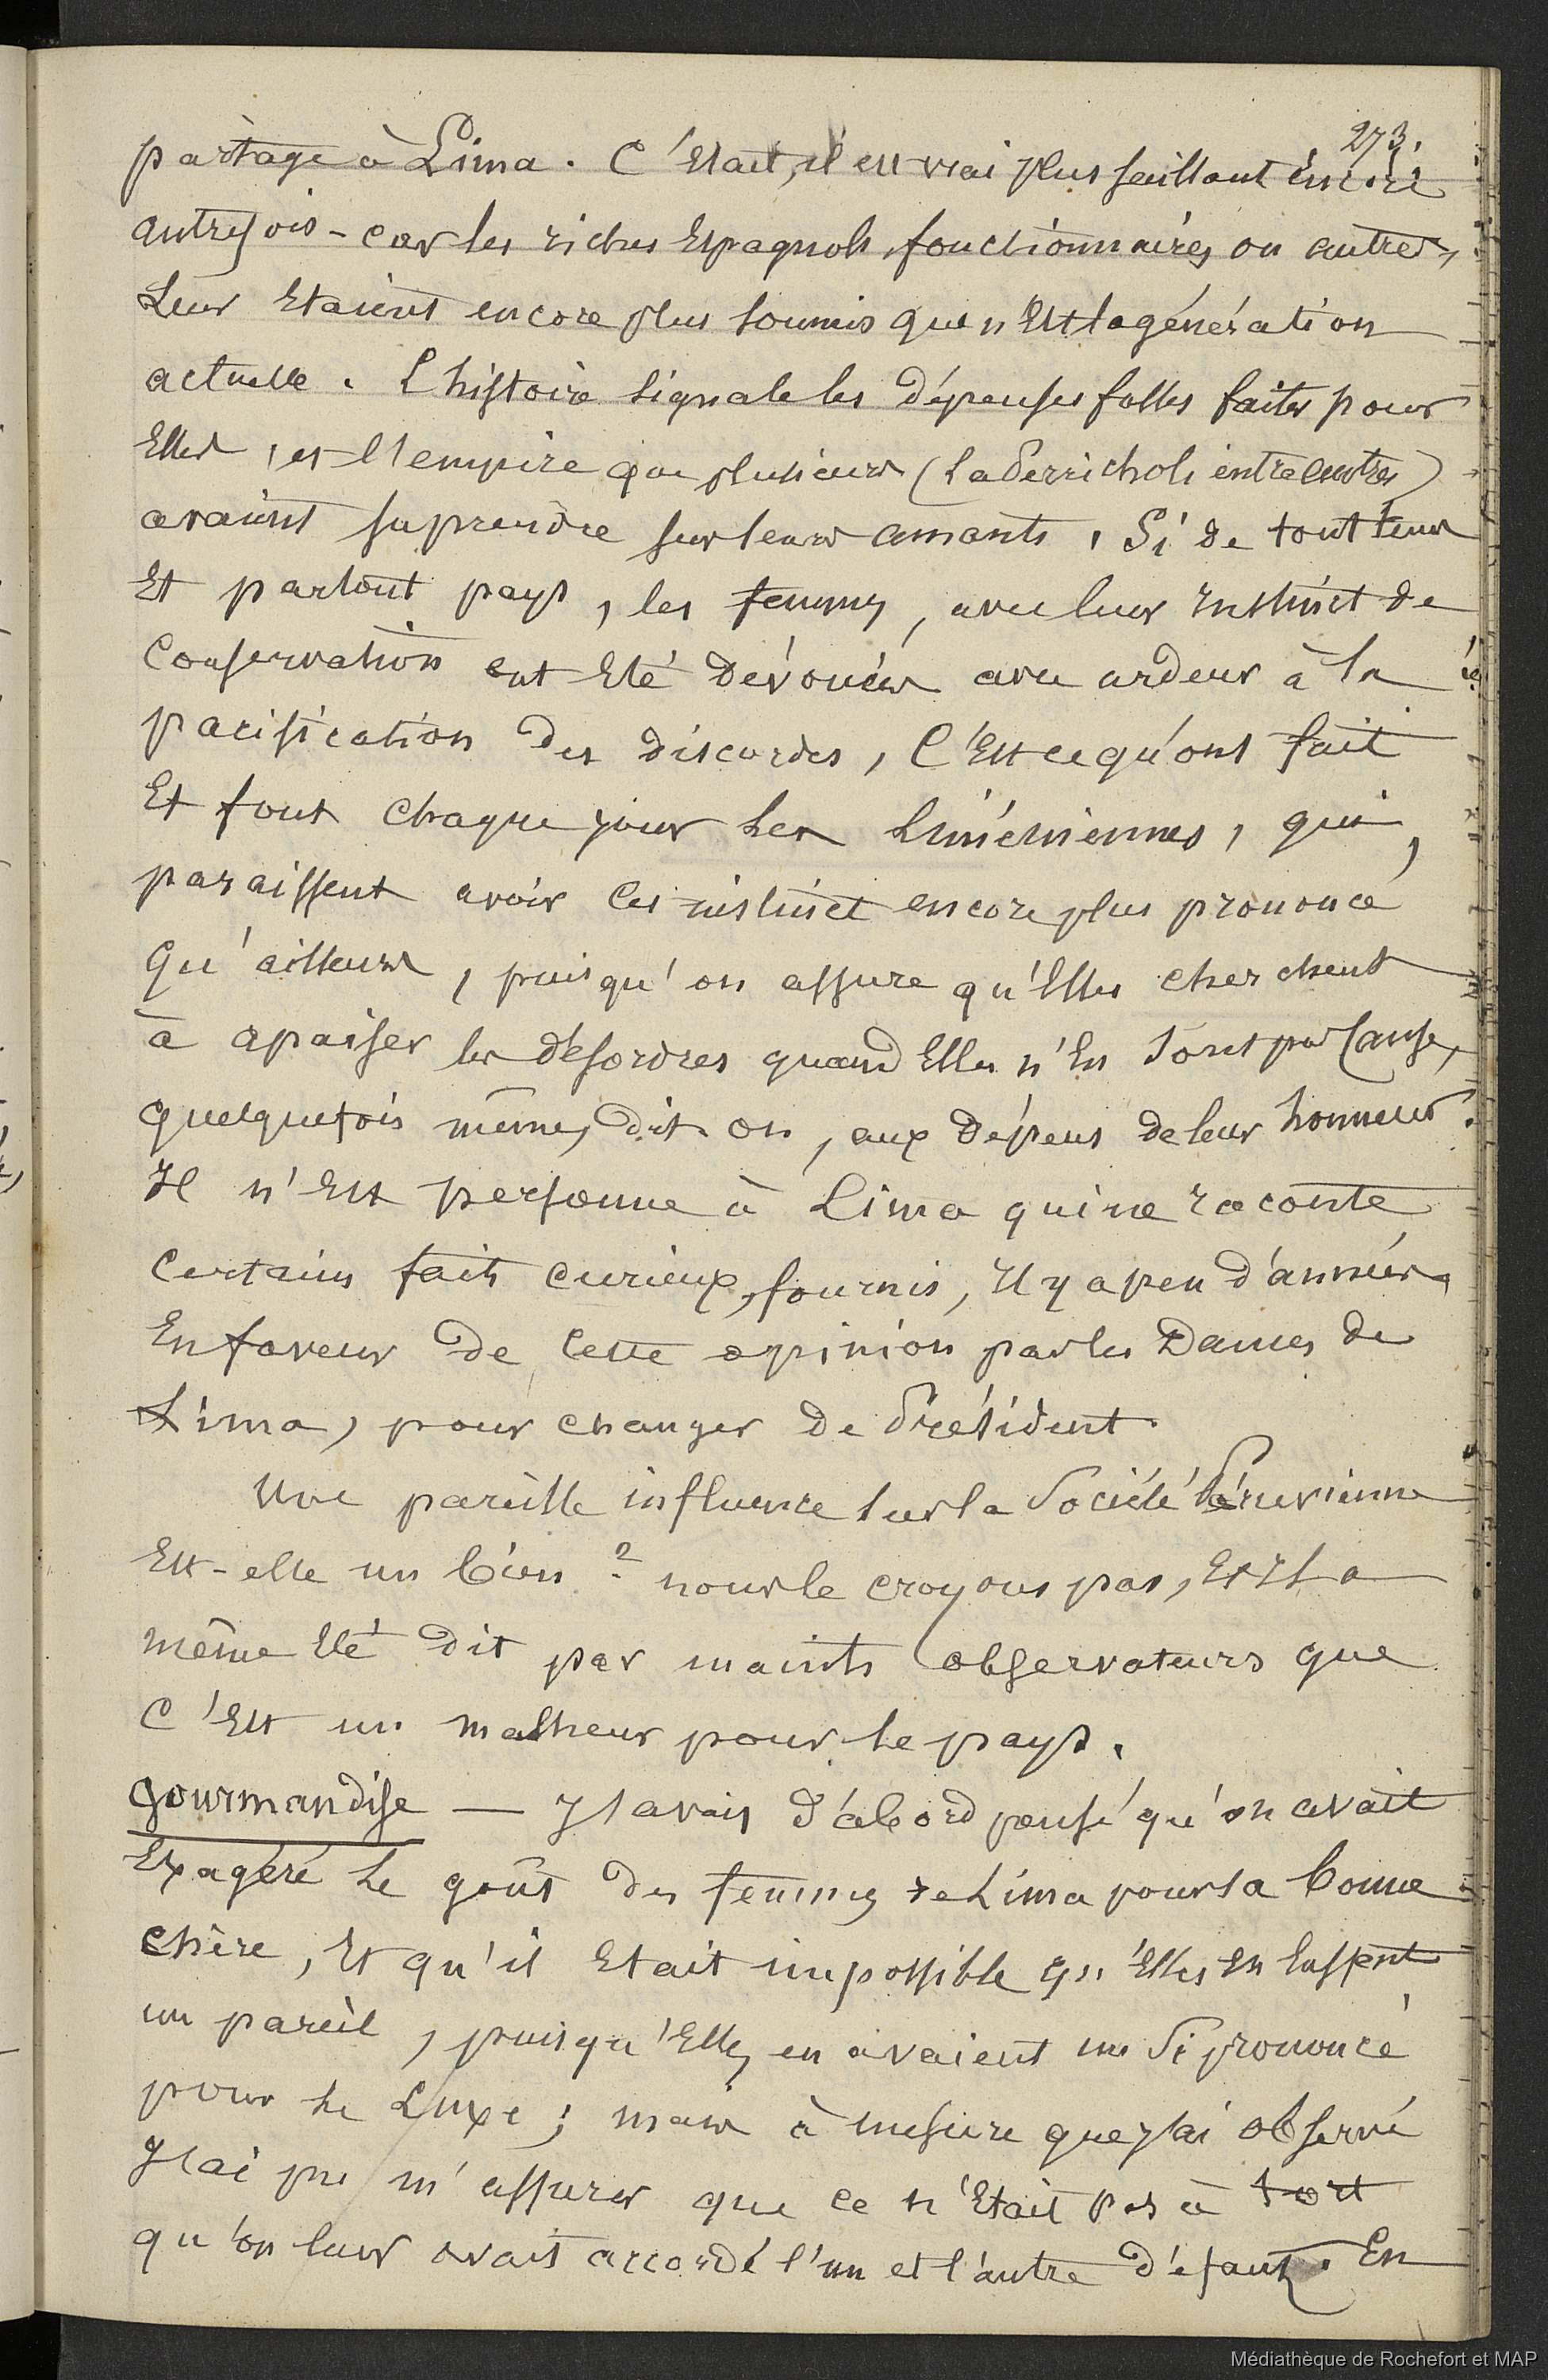 273.
partage à Lima. C'Etait, il est vrai plus saillant encore
autrefois - car les riches Espagnols, fonctionnaires ou autres,
Leur Etaient encore plus soumis que n'Est la génération
actuelle. L'histoire signale les dépenses folles faites pour
Elles, et l'empire que plusieurs (La Perricholi entre autres)
avaient su prendre sur leurs amants. Si de tout tems
Et partout pays, les femmes, avec leur instinct de
Conservation ont Eté dévouées avec ardeur à la
pacification des discordes, C'Est ce qu'ont fait
Et font chaque jour les Liméniennes, qui,
paraissent avoir Ces instinct encore plus prononcé
qu'ailleurs, puisqu'on assure qu'Elles cherchent
à apaiser les désordres quand Elles n'En sont pas Cause,
quelquefois même, dit-on, aux dépens de leur honneur.
Il n'Est personne à Lima qui ne raconte
Certains faits curieux, fournis, Il y a peu d'années
En faveur de cette opinion par les Dames de
Lima, pour changer de Président.
Une pareille influence sur la Société Péruvienne
Est-elle un bien ? nous le croyons pas, Et Il a
même Eté dit par maints observateurs que
C'Est un malheur pour le pays.
Gourmandise — J'avais d'abord pensé qu'on avait
Exagéré le goût des femmes de Lima pour la bonne
Chère, Et qu'il Etait impossible qu'Elles En Eussent
un pareil, puisqu'Elles en avaient un Si prononcé
pour le Luxe; mais à mesure que j'ai observé
J'ai pu m'assurer que ce n'Etait pas à tort
qu'on leur avait accordé l'un et l'autre défaut. En
Médiathèque de Rochefort et MAP